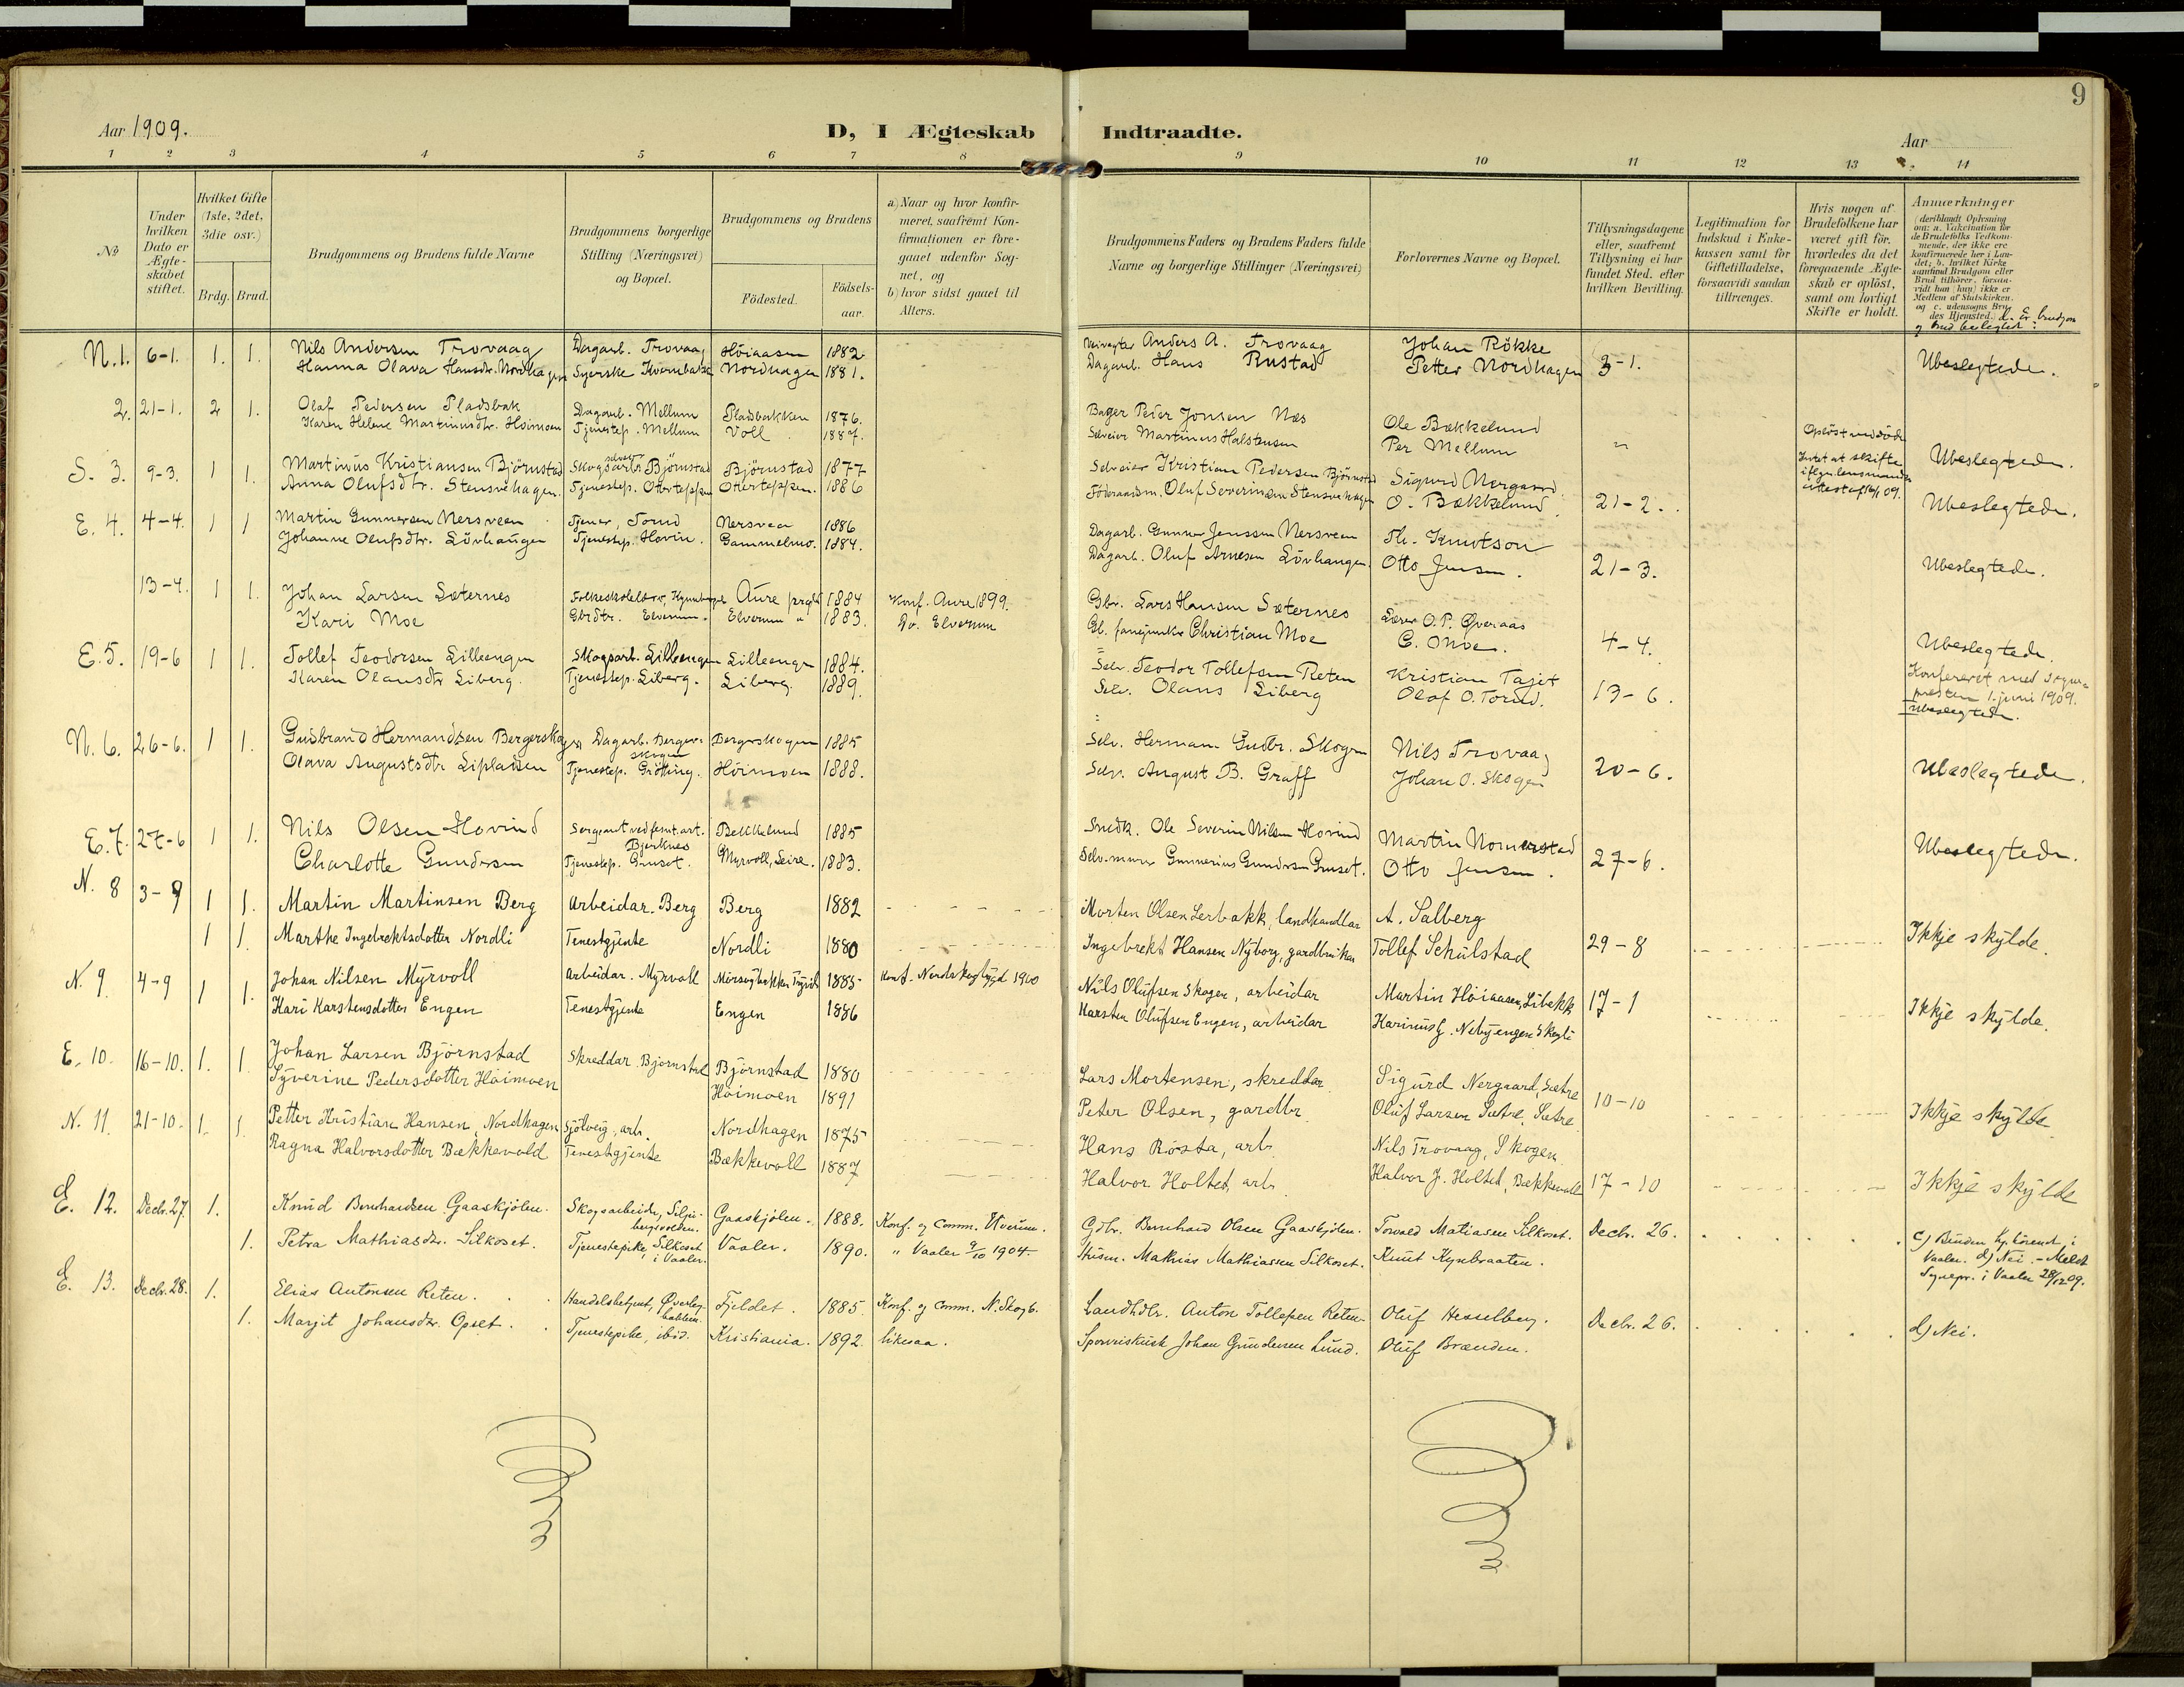 9
Aar 1909.
D, I Ægteskab Indtraadte.
Aar
1 2 3 4 5 6 7 8 9 10 11 12 13 14
No
Under hvilken Dato er Ægteskabet stiftet.
Hvilket Gifte (1ste, 2det, 3die osv.)
Brdg. Brud.
Brudgommens og Brudens fulde Navne
Brudgommens borgerlige Stilling (Næringsvei) og Bopæl.
Brudgommens og Brudens
Födested.
Födselsaar.
a) Naar og hvor konfirmeret, saafremt Konfirmationen er foregaaet udenfor Sognet, og
b) hvor sidst gaaet til Alters.
Brudgommens Faders og Brudens Faders fulde Navne og borgerlige Stillinger (Næringsvei)
Forlovernes Navne og Bopæl.
Tillysningsdagene eller, saafremt Tillysning ei har fundet Sted, efter hvilken Bevilling.
Legitimation for Indskud i Enkekassen samt for Giftetilladelse, forsaavidt saadan tiltrænges.
Hvis nogen af Brudefolkene har været gift för, hvorledes da det foregaaende Ægteskab er oplöst, samt om lovligt Skifte er holdt.
Anmerkninger (deriblandt Oplysning om: a. Vakcination for de Brudefolks Vedkommende, der ikke ere konfirmerede her i Landet; b. hvilket Kirkesamfund Brudgom eller Brud tilhörer, forsaavidt han (hun) ikke er Medlem af Statskirken, og c. udensogns Brudes Hjemsted. d. Er brudgom og brud beslegtet?
N. 1. 6-1. 1. 1. Nils Andersen Trovaag Dagarb. Trovaag Höiaasen 1882 Anders A. Trovaag Johan Rökke 3-1. Ubeslegtede.
Hanna Olava Hansdtr. Nordhagen Syerske Nordhagen 1881. Dagarb. Hans Rustad Petter Nordhagen
2. 21-1. 2 1. Olaf Pedersen Pladsbak Dagarb. Mellum Pladsbakken 1876. Bager Peder Jonsen Næs Ole Bækkelund " Opløst ved död Ubeslegtede.
Karen Helene Martinusdtr. Höimoen Tjenestep. Mellum Voll 1887. Selveier Martinus Halstensen Per Mellum Intet at skifte
S. 3. 9-3. 1 1. Martinus Kristiansen Björnstad Skogsarb. Björnstad Björnstad 1877 Selveier Kristian Pedersen Björnstad Sigurd Nergaard. 21-2. Ubeslegtede.
Anna Olufsdtr. Stensvehagen. Tjenestep. Otterteppen Otterteppen. 1886 Föderaadsm. Oluf Severinsen Stensvehagen O. Bækkelund.
E. 4. 4-4. 1 1 Martin Gunnersen Nersveen Tjener, Sorud Nersveen 1886 Dagarb. Gunner Jenssen Nersveen Th. Knutson 21-3. Ubeslegtede.
Johanne Olufsdtr. Lövhaugen Tjenestep. Hovin. Gammelmo. 1884. Dagarb. Oluf Arnesen Lövhaugen. Otto Jensen.
13-4. 1 1. Johan Larsen Sæternes Aure 1884 Konf. Aure 1899. Gbr. Lars Hansen Sæternes Lærer O. P. Øveraas 4-4. Ubeslegtede.
Kari Moe Gbrdtr. Elverum. Elverum " 1883. Do. Elverum Christian Moe C. Moe.
E. 5. 19-6 1 1. Tollef Teodorsen Lilleengen Skogsarb. Lilleengen Lilleengen 1884. Selv. Teodor Tollefsen Reten Kristian Tajet 13-6. Konfereret med Sognepresten 1. juni 1909. Ubeslegtede.
Karen Olausdtr Liberg. Tjenestep. Liberg. Liberg. 1889. Selv. Olaus Liberg Olof O. Torud.
N. 6. 26-6. 1 1. Gudbrand Hermandsen Bergerskogen Dagarb. Bergerskogen Bergerskogen 1885 Selv. Herman Gudbr. Skogen Nils Trovaag 20-6. Ubeslegtede.
Olava Augustsdtr Liplassen Tjenestep. Grötting. Höimoen 1888. Selv. August B. Graff Johan O. Skogen
E. 7. 27-6 1 1. Nils Olsen Hovind Sergeant ved fesnt. art. Bjerknes Bekkelund 1885 Smedk. Ole Severin Nilsen Hovind Martin Nomerstad 27-6. Ubeslegtede.
Charlotte Gundersen Tjenestep. Gruset. Myrvoll, Seire. 1883. Gunnerius Gundersen Gruset. Otto Jensen.
N. 8 3-9 1 1. Martin Martinsen Berg Arbeidar. Berg Berg 1882 Morten Olsen Lerbakk, landhandlar A. Salberg 29-8 Ikkje skylde.
1 1. Marthe Ingebrektsdotter Nordli Tenestgjente Nordli 1880 Ingebrekt Hansen Nyborg, gardbrukar Tollef Schulstad
N. 9. 4-9 1 1. Johan Nilsen Myrvoll Arbeidar. Myrvoll 1885 Konf. Nordskogbygd 1900 Nils Olufsen Skogen, arbeidar Martin Höiaasen, Libekk 17-1 Ikkje skylde.
Kari Karstensdotter Engen Tenestgjente Engen 1886 Karsten Olufsen Engen, arbeidar
E. 10. 16-10. 1. 1 Johan Larsen Björnstad Skreddar. Björnstad Björnstad 1880 Lars Mortensen, skreddar Sigurd Nergaard, Sætre 10-10 Ikkje skylde
Syverine Pedersdotter Höimoen Höimoen 1891 Peter Olsen, gardbr. Oluf Larsen Sætre, Sætre
N. 11. 21-10. 1. 1. Petter Kristian Hansen, Nordhagen Sjölveig, arb. Nordhagen 1875 Hans Rösta, arb. Nils Trovaag, Skogen 17-10 Ikkje skylde
Ragna Halvorsdotter Bækkevold Tenestgjente Bækkevoll 1887 Halvor Holtet, arb. Halvor J. Holtet, Bækkevoll
E. 12. Decbr. 27. 1. Knud Bernhardsen Gaaskjölen. Skogsarbeider, Siljubergsvolden. Gaaskjölen. 1888. Konf. og Comm. Elverum. Gdbr. Bernhard Olsen Gaaskjölen. Torvald Matiasen Silkoset. Decbr. 26. c) Bruden hj.hörende i Vaaler. d) Nei. - Meldt Sognepr. i Vaaler 28/12 09.
1. Petra Mathiasdtr. Silkoset. Tjenestepike, Silkoset i Vaaler. Vaaler. 1890. " Vaaler 9/10 1904. Husm. Mathias Mathiassen Silkoset. Knut Kynbraaten.
E. 13. Decbr. 28. 1. Elias Antonsen Reten. Handelsbetjent, Øverbybakken. Fjeldet. 1885. Konf. og Comm. N. Skogb. Landhdlr. Anton Tollefsen Reten. Oluf Hesselberg. Decbr. 26. d) Nei.
1. Marjit Johansdtr. Opset. Tjenestepike, ibid. Kristiania. 1892. likesaa. Sporveiskusk Johan Gundersen Lund. Oluf Brænden.